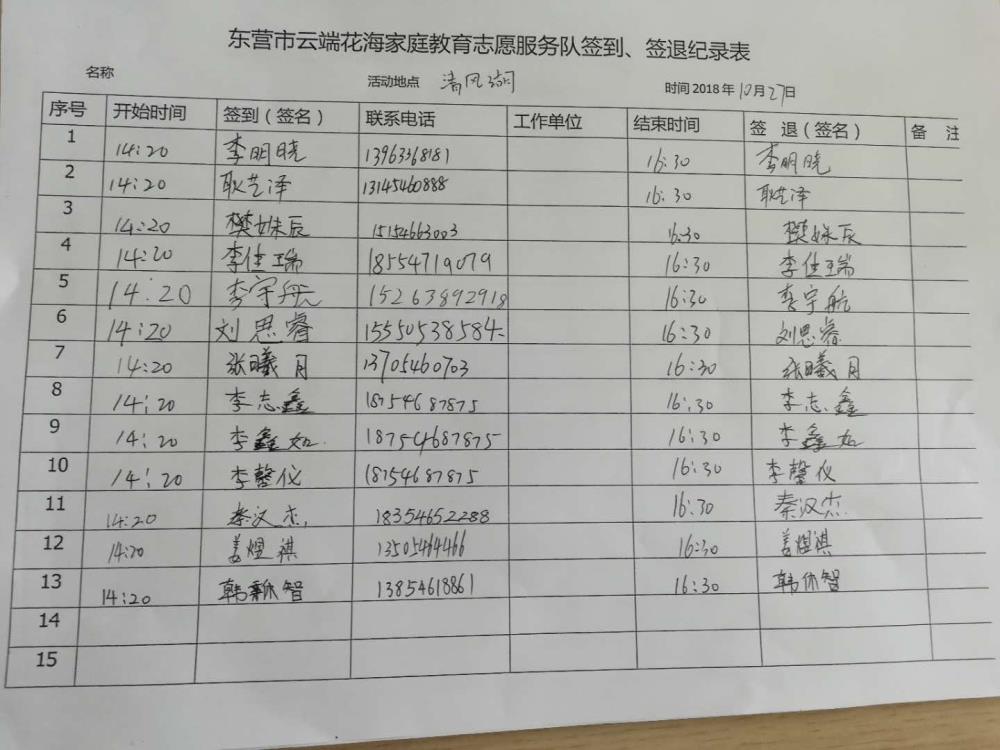 东营市云端花海家庭教育志愿服务队签到、签退纪录表
名称 活动地点 清风湖 时间2018年10月27日
序号 开始时间 签到(签名) 联系电话 工作单位 结束时间 签 退(签名) 备 注
1 14:20 李明晓 13963368181 16:30 李明晓
2 14:20 耿艺泽 13145460888 16:30 耿艺泽
3 14:20 樊姝辰 15154663003 16:30 樊姝辰
4 14:20 李佳瑞 18554719079 16:30 李佳瑞
5 14:20 李宇航 15263892918 16:30 李宇航
6 14:20 刘思睿 15550538584 16:30 刘思睿
7 14:20 张曦月 13705460703 16:30 张曦月
8 14:20 李志鑫 18754687875 16:30 李志鑫
9 14:20 李鑫如 18754687875 16:30 李鑫如
10 14:20 李馨仪 18754687875 16:30 李馨仪
11 14:20 秦汉杰 18354652288 16:30 秦汉杰
12 14:20 姜煜祺 13505464466 16:30 姜煜祺
13 14:20 13854618861 16:30 韩休智
14
15